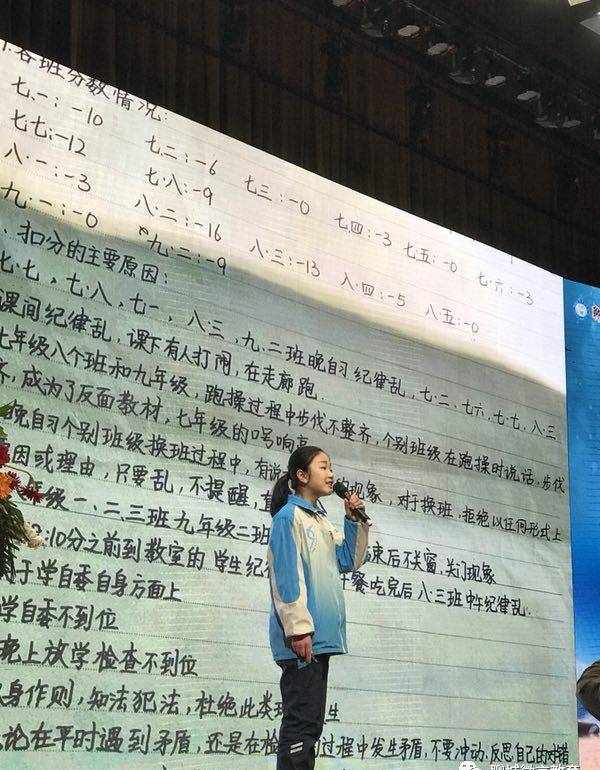 各班分数情况：
七.一：-10 七.二：-6 七三：-0 七.四：-3 七五：-0 七.六：-3
七七：-12 七.八：-9
八.一：-3 八.二：-16 八.三：-13 八.四：-5 八五：-0
九.一：-0 九.二：-9
、扣分的主要原因：
七.七，七.八，七一，八三，九.二班晚自习纪律乱，七.二、七六、七.七、八.三
课间纪律乱，课下有人打闹，在走廊跑.
七年级八个班和九年级，跑操过程中步伐不整齐，个别班级在跑操时说话，步伐
齐，成为了反面教材，七年级的口号响亮
晚自习个别班级换班过程中，有说 的现象，对于换班，拒绝以任何形式上
因或理由，只要乱，不提醒，直
年级一、二三班九年级二班 束后不关窗，关门现象
:10分之前到教室的学生纪 午餐吃完后八.三班中午纪律乱.
于学自委自身方面上
学自委不到位
晚上放学检查不到位
身作则，知法犯法，杜绝此类现 生
论在平时遇到矛盾，还是在检 过程中发生矛盾，不要冲动，反思自己的对错